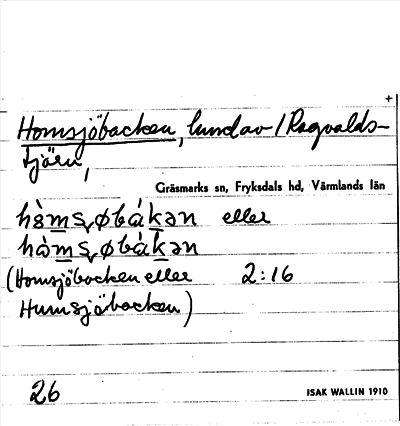 +
Homsjöbacken, lund av /Ragvalds-
tjärn,
Gräsmarks sn, Fryksdals hd, Värmlands län
hòmsøbákən eller
håmsøbákən
(Homsjöbacken eller 2:16
Humsjöbacken)
26 ISAK WALLIN 1910